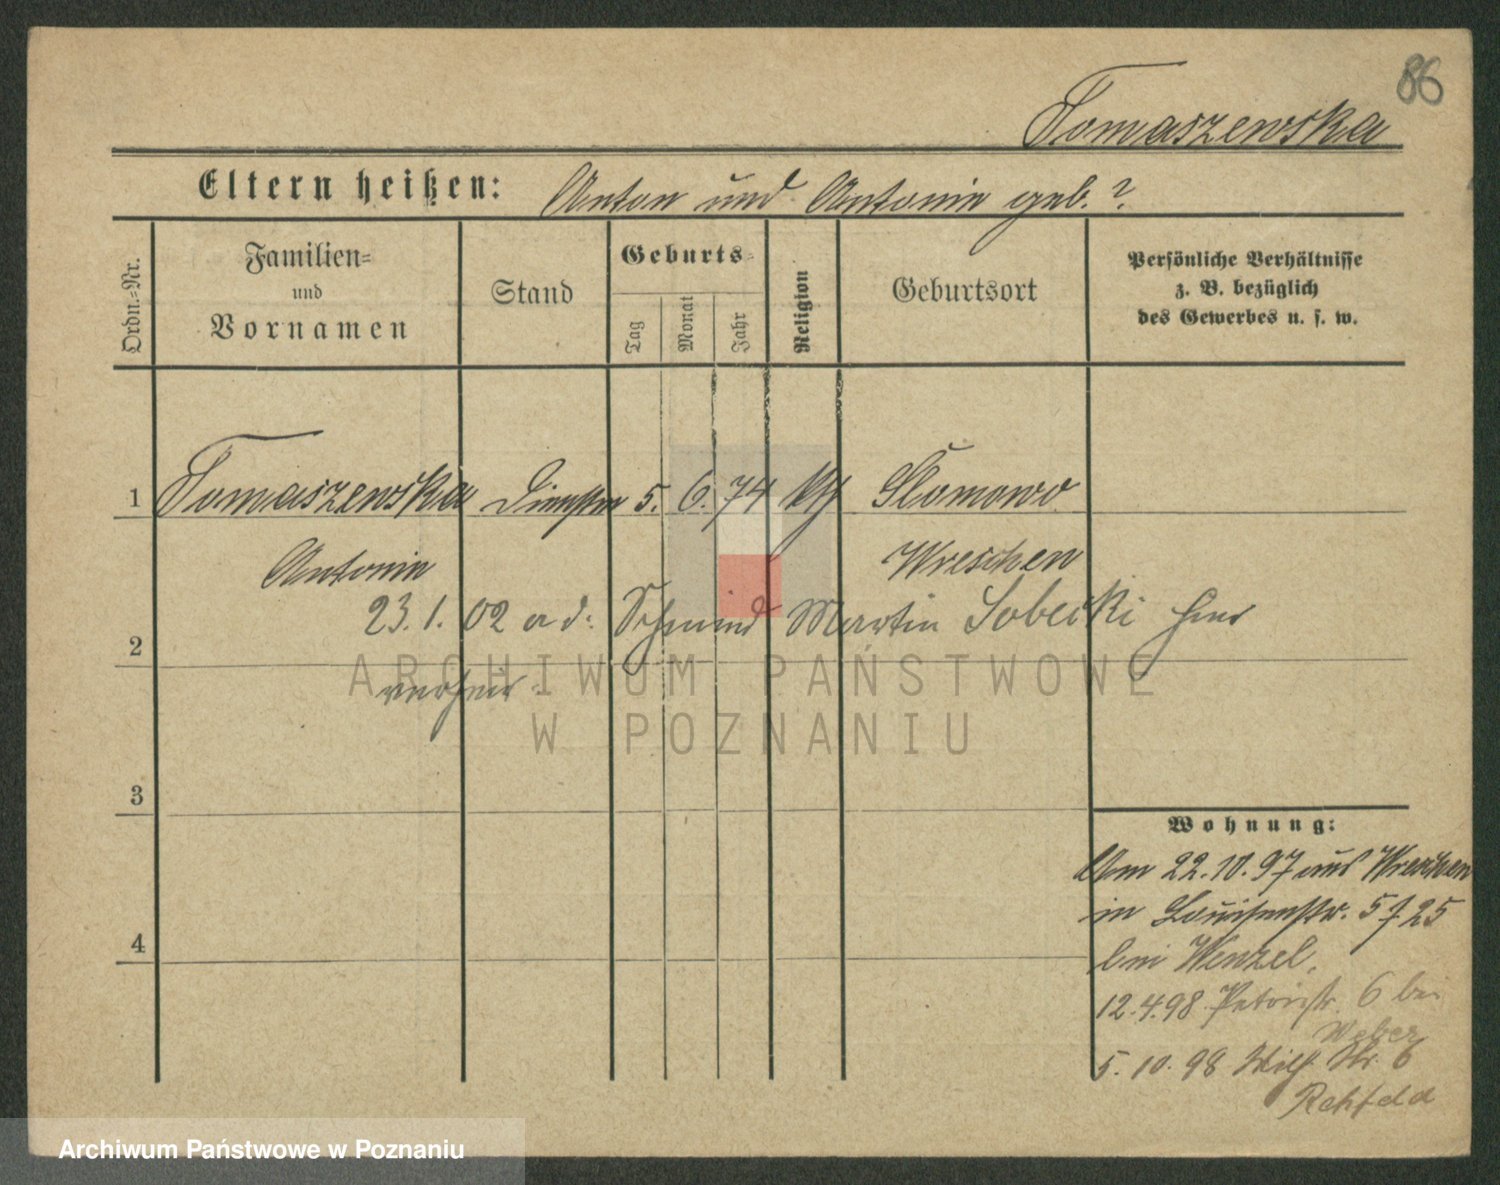 86
Tomaszewska
Eltern heißen: Anton und Antonie geb. ?
Ordn.=Nr.
Familien=
und
Vornamen
Stand
Geburts=
Tag
Monat
Jahr
Religion
Geburtsort
Persönliche Verhältnisse
z. B. bezüglich
des Gewerbes u. s. w.
1 Tomaszewska 5. 6. 74 kth Slomowo
Antonie Wreschen
23.1.02 Schmied Martin Sobecki hier
2
3
4
Wohnung:
Am 22.10.97 aus Wreschen
in Louisenstr. 5 f 25
bei Wenzel.
12.4.98 Petristr. 6 bei
Weber
5.10.98 Wilh. Str. 6
Rehfeld
ARCHIWUM PAŃSTWOWE
W POZNANIU
Archiwum Państwowe w Poznaniu